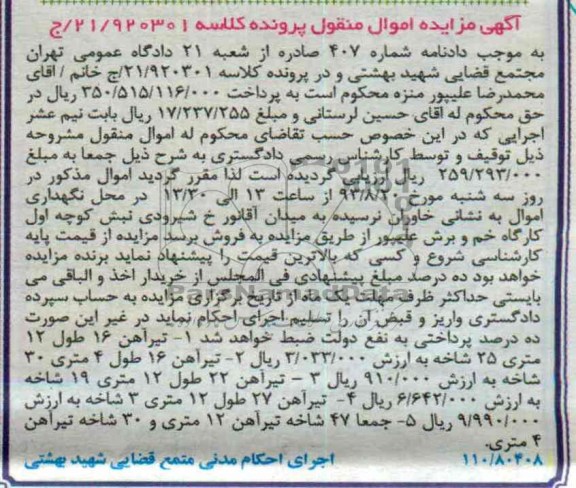 آگهی مزایده اموال منقول پرونده کلاسه ۲۱/۹۲۰۳۰۱/ج
به موجب دادنامه شماره ۴۰۷ صادره از شعبه ۲۱ دادگاه عمومی تهران
مجتمع قضایی شهید بهشتی و در پرونده کلاسه ۲۱/۹۲۰۳۰۱/ج خانم / آقای
محمدرضا علیپور منزه محکوم است به پرداخت ۳۵۰/۵۱۵/۱۱۶/۰۰۰ ریال در
حق محکوم له آقای حسین لرستانی و مبلغ ۱۷/۲۳۷/۲۵۵ ریال بابت نیم عشر
اجرایی که در این خصوص حسب تقاضای محکوم له اموال منقول مشروحه
ذیل توقیف و توسط کارشناس رسمی دادگستری به شرح ذیل جمعا به مبلغ
۲۵۹/۲۹۳/۰۰۰ ریال گردیده است لذا مقرر گردید اموال مذکور در
روز سه شنبه مورخ ۹۳/۸/۲۰ از ساعت ۱۳ الی ۱۳/۳۰ در محل نگهداری
اموال به نشانی خاوران نرسیده به میدان آقانور خ شیرودی نبش کوچه اول
کارگاه خم و برش علیپور از طریق مزایده به فروش برسد مزایده از قیمت پایه
کارشناسی شروع و کسی که بالاترین قیمت را پیشنهاد نماید برنده مزایده
خواهد بود ده درصد مبلغ پیشنهادی فی المجلس از خریدار اخذ و الباقی می
بایستی حداکثر ظرف مهلت یک ماه از تاریخ برگزاری مزایده به حساب سپرده
دادگستری واریز و قبض آن را تسلیم اجرای احکام نماید در غیر این صورت
ده درصد پرداختی به نفع دولت ضبط خواهد شد ۱- تیرآهن ۱۶ طول ۱۲
متری ۲۵ شاخه به ارزش ۳/۰۳۳/۰۰۰ ریال ۲- تیرآهن ۱۶ طول ۴ متری ۳۰
شاخه به ارزش ۹۱۰/۰۰۰ ریال ۳ – تیرآهن ۲۲ طول ۱۲ متری ۱۹ شاخه
به ارزش ۶/۶۴۲/۰۰۰ ریال ۴- تیرآهن ۲۷ طول ۱۲ متری ۳ شاخه به ارزش
۹/۹۹۰/۰۰۰ ریال ۵- جمعا ۴۷ شاخه تیرآهن ۱۲ متری و ۳۰ شاخه تیرآهن
۴ متری.
۱۱۰/۸۰۴۰۸ اجرای احکام مدنی متمع قضایی شهید بهشتی